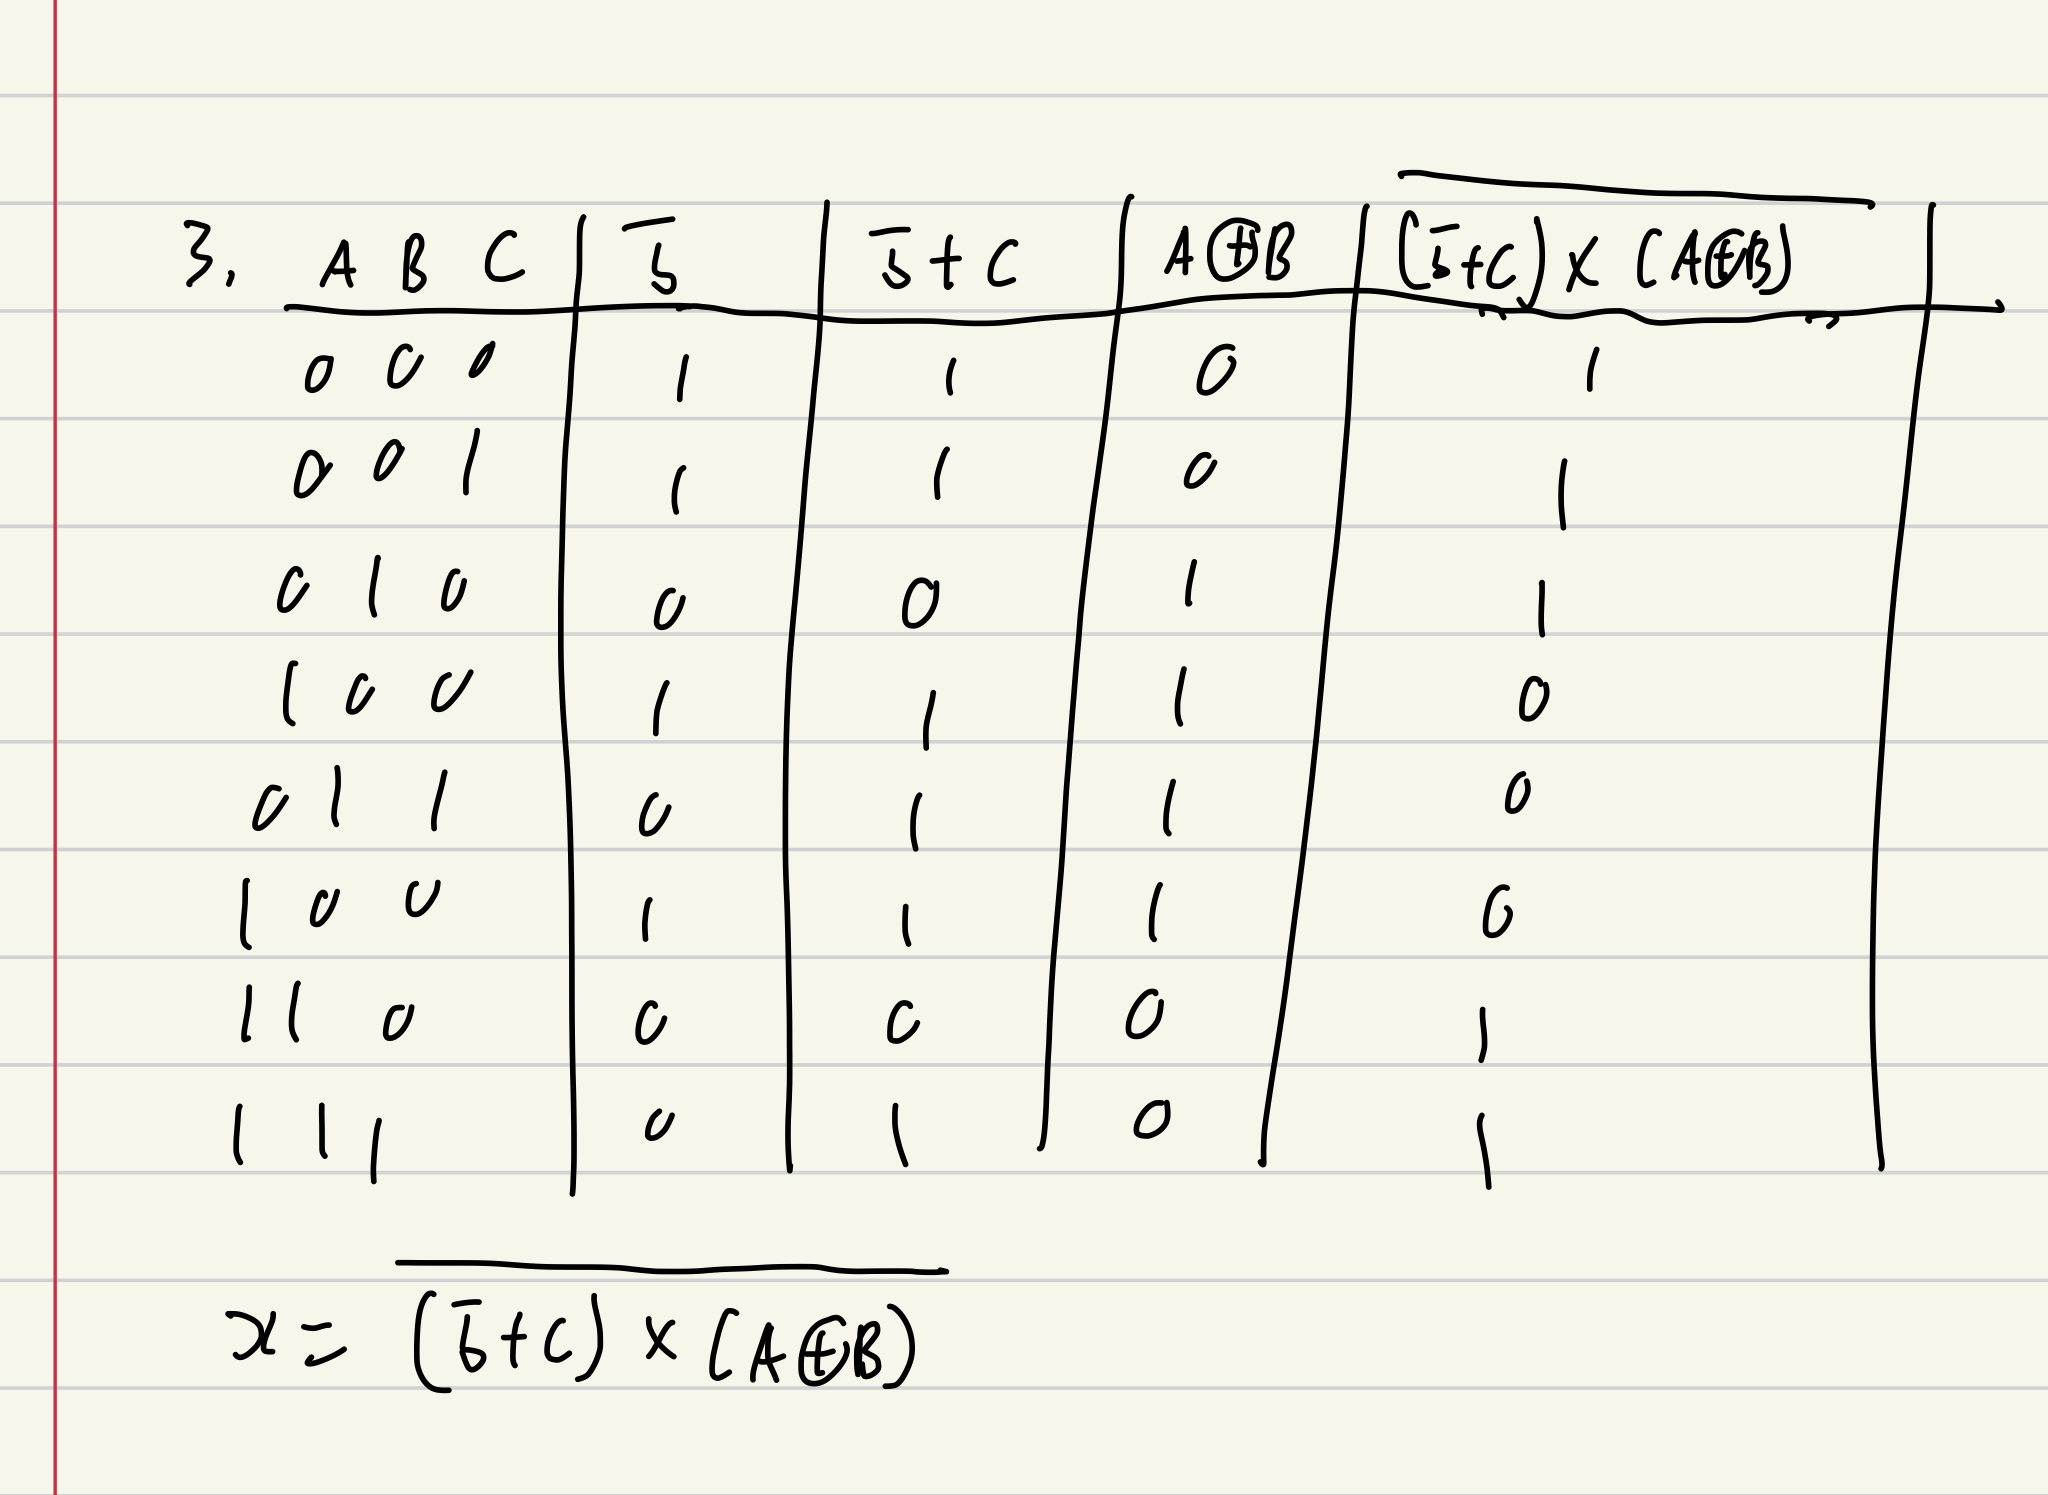 3. A B C | B̅ | B̅ + C | A ⊕ B | \overline{(B̅ + C) × (A ⊕ B)} |
0 0 0 | 1 | 1 | 0 | 1
0 0 1 | 1 | 1 | 0 | 1
0 1 0 | 0 | 0 | 1 | 1
1 0 0 | 1 | 1 | 1 | 0
0 1 1 | 0 | 1 | 1 | 0
1 0 0 | 1 | 1 | 1 | 0
1 1 0 | 0 | 0 | 0 | 1
1 1 1 | 0 | 1 | 0 | 1
x = \overline{(B̅ + C) × (A ⊕ B)}